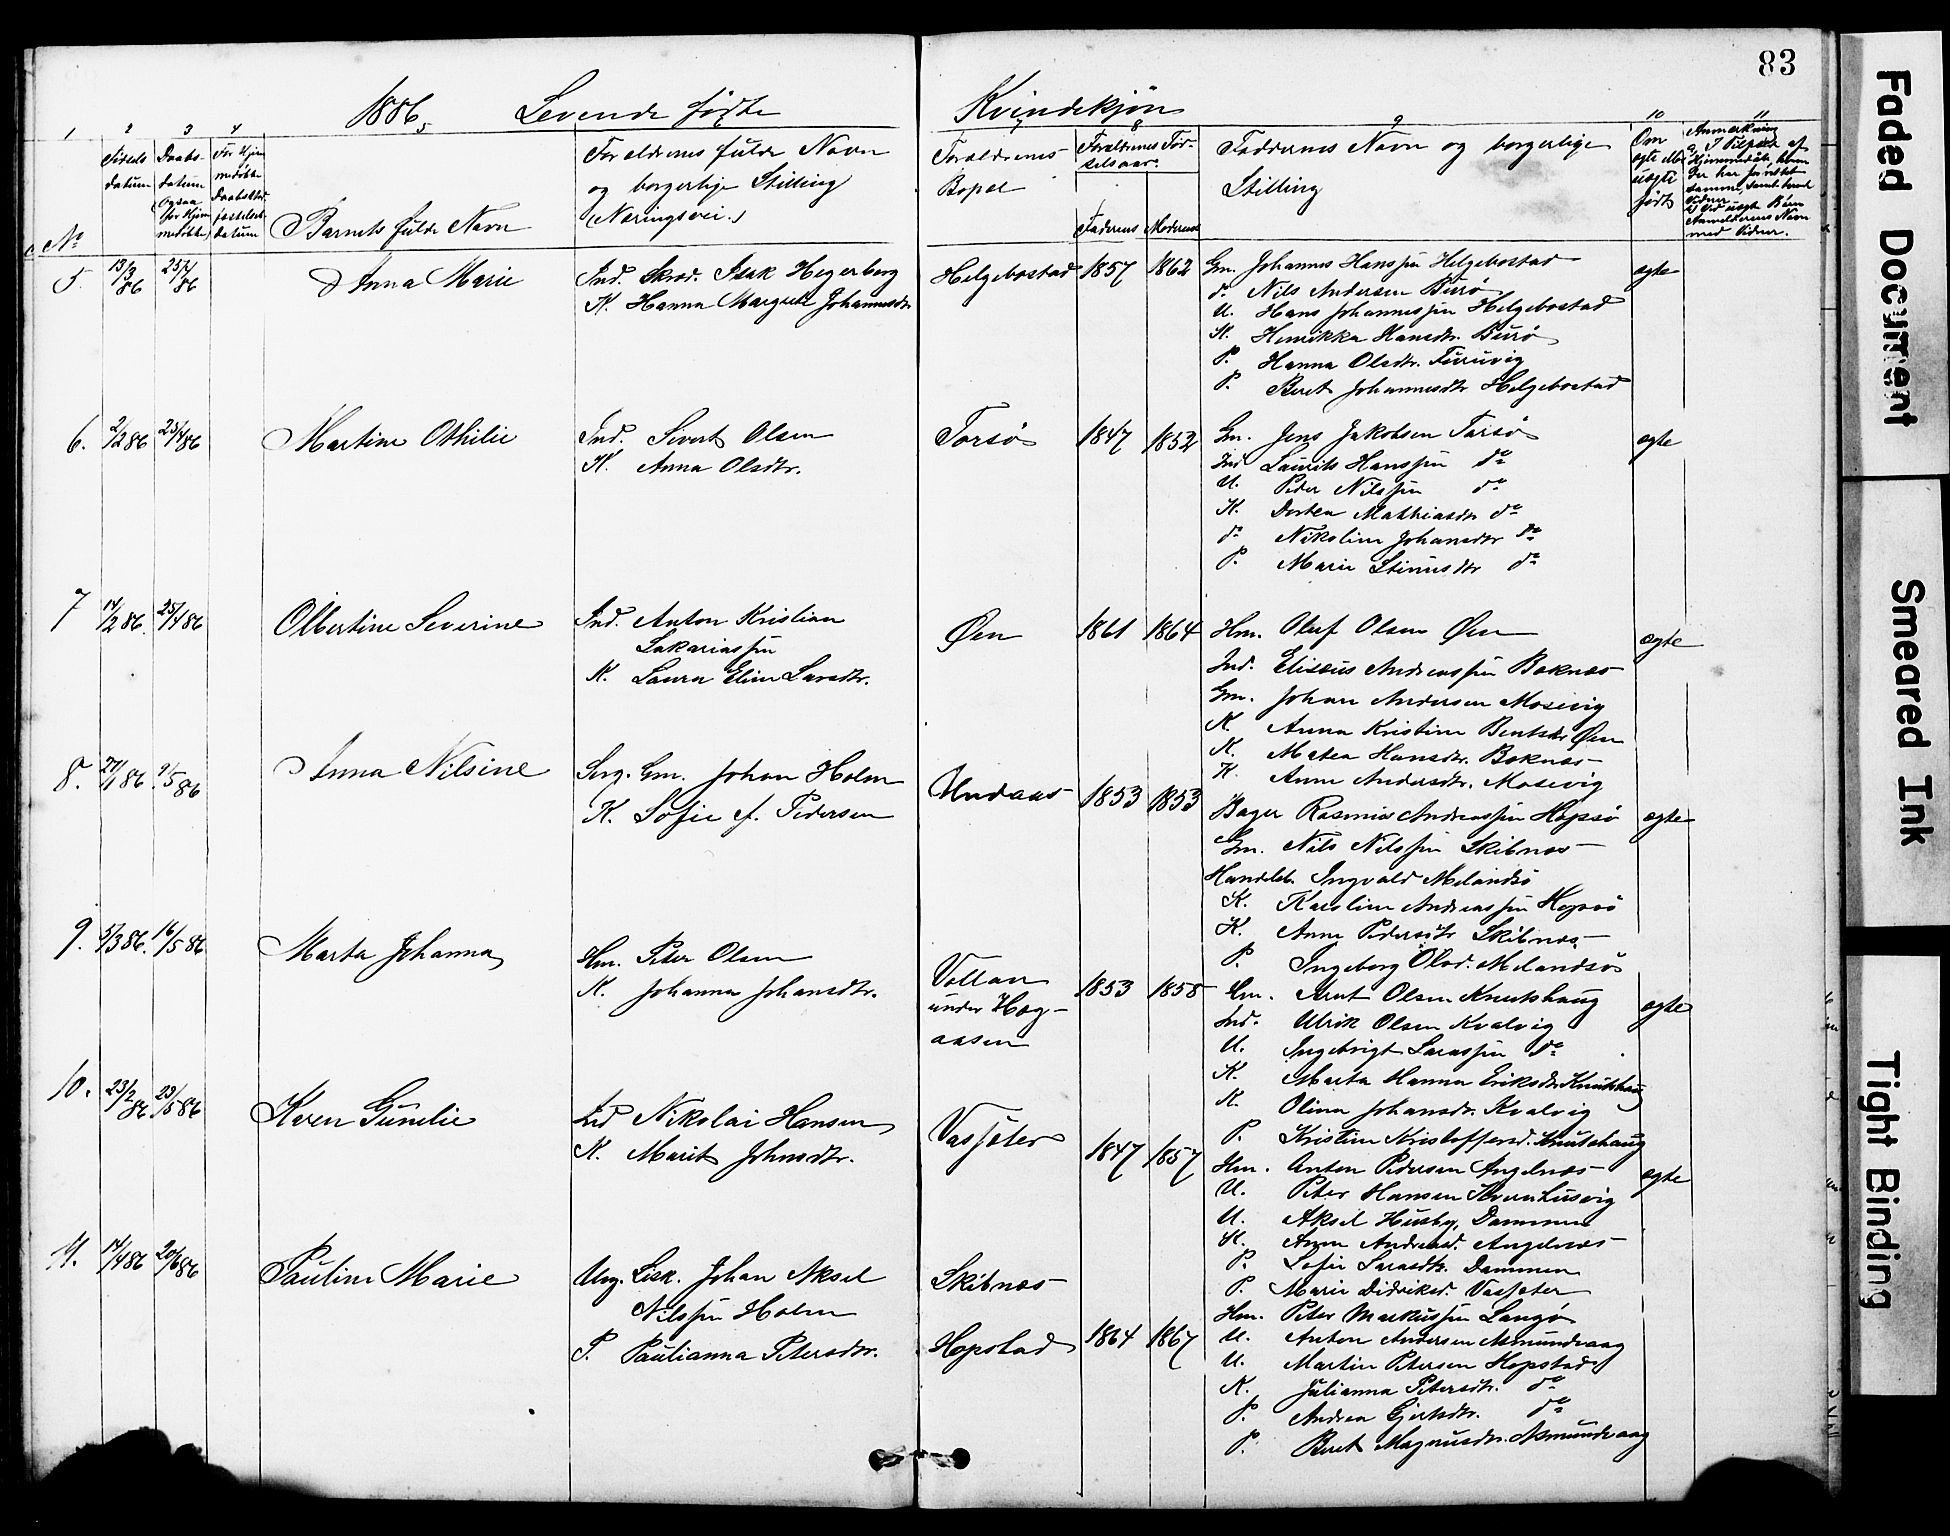 83
1886,
Levende fødte
Kvindekjøn
1 2 3 4 7 8 9 10 11
No
Fødsels datum
Daabs-datum
Barnets fulde Navn
Forældrenes fulde Navn
og borgerlige Stilling
(Næringsvei.)
Forældrenes
Bopæl
Forældrenes Fød-
selsaar.
Faderens Moderens
Faddernes Navn og borgerlige
Stilling
Om
ægte eller
uægte
født
Anmærkning
5. 13/3 86 25/4 86 Anna Marie
Ind. Skræd. Isak Hegerberg
K. Hanna Margrete Johannesdtr.
Helgebostad 1857 1862
Gm. Johannes Hanssen Helgebostad
d. Nils Andersen Burø
U. Hans Johannessen Helgebostad
K. Henrikka Hansdtr. Burø
P. Hanna Olsdtr. Furuvig
P. Beret Johannesdtr Helgebostad
ægte
6. 2/2 86 25/4 86 Martine Othilie
Ind. Sivert Olsen
K. Anna Olsdtr.
Torsø 1847 1852
Gm. Jens Jakobsen Torsø
Ind Laurits Hanssen do
U. Peder Nilssen do
K. Dortea Mathiasdtr do
do Nikoline Johansdtr do
P. Marie Stinusdtr do
ægte
7 14/2 86. 25/4 86 Olbertine Severine
Ind. Anton Kristian
Sakariassen
K. Laura Eline Larsdtr.
Øen 1861 1864
Hm. Oluf Olsen Øen
Ind. Elisæus Andreassen Boknæs
Gm. Johan Andersen Mosevig
K. Anna Kristine Bentsdtr Øen
K. Metea Hansdtr. Boknæs
K. Anne Andersdtr. Mosevig
ægte
8. 27/1 86. 9/5 86 Anna Nilsine
Serg. Gm. Johan Holm
K. Sofie f. Pedersen
Undaas 1853 1853
Bager Rasmus Andreassen Hopsø
Gm. Nils Nilssen Skibnæs
Handelsb. Ingvald Melandsø
K. Karoline Andreassen Hopsø
K. Anne Pedersdtr Skibnæs
P. Ingeborg Olsd. Melandsø
ægte
9. 5/3 86. 16/5 86 Marta Johanna
Hm. Peter Olsen
K. Johanna Johansdtr.
Vollan
under Hog-
aasen
1853 1858
Gm. Arnt Olsen Knutshaug
Ind. Ulrik Olsen Kvalvig
U. Ingebrigt Larssen do
K. Marta Hanna Eriksdtr Knutshaug
K. Olina Johansdtr. Kvalvig
P. Kristine Kristoffersd. Knutshaug
ægte
10. 23/2 86 23/5 86 Karen Gunelie
Ind Nikolai Hansen
K. Marit Johnsdtr.
Vassæter 1847 1857
Hm. Anton Pedersen Angelnæs
U. Peter Hansen Kvernhusvig
U. Aksel Husby, Dammen
K. Anne Andreasd. Angelnæs
P. Sofie Larsdtr. Dammen
P. Marie Didriksd. Vassæter
ægte
11. 14/4 86 20/6 86 Pauline Marie
Ung. Fisk. Johan Aksel
Nilssen Holm
P. Paulianna Petersdtr.
Skibnæs
Hopstad 1864 1867
Hm. Peter Markussen Langø
U. Anton Andersen Asmundvaag
U. Martin Petersen Hopstad
K. Julianna Petersdtr. do
P. Andrea Gjertsdtr. do
P. Beret Magnusdtr. Asmundvaag
Faded Document
Smeared Ink
Tight Binding